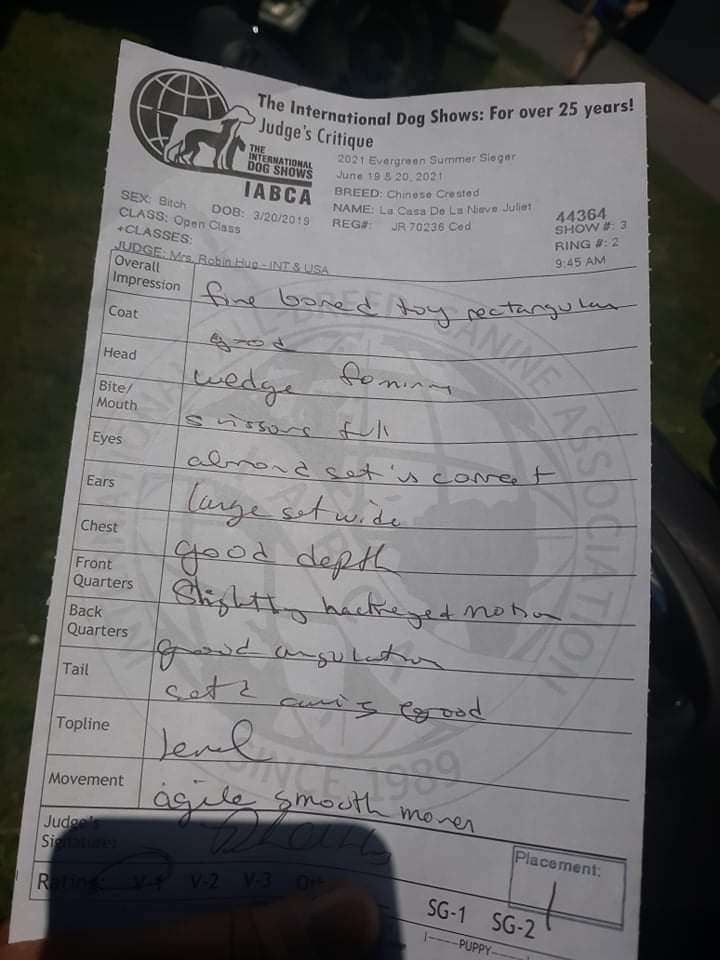 The International Dog Shows: For over 25 years!
Judge's Critique
THE
INTERNATIONAL
DOG SHOWS
IABCA
2021 Evergreen Summer Sieger
June 19 & 20, 2021
BREED: Chinese Crested
NAME: La Casa De La Nieve Juliet
REG#: JR 70236 Ced
44364
SHOW #: 3
RING #: 2
9:45 AM
SEX: Bitch DOB: 3/20/2019
CLASS: Open Class
+CLASSES:
JUDGE: Mrs. Robin Hug - INT & USA
Overall Impression fine boned toy rectangular
Coat good
Head wedge
Bite/Mouth scissors full
Eyes almond set is correct
Ears large set wide
Chest good depth
Front Quarters Slightly motion
Back Quarters good angulation
Tail set & good
Topline level
Movement agile smooth mover
Judge's Signature:
Rating: V-1 V-2 V-3
SG-1 SG-2
Placement: 1
PUPPY
CANINE ASSOCIATION
SINCE 1989